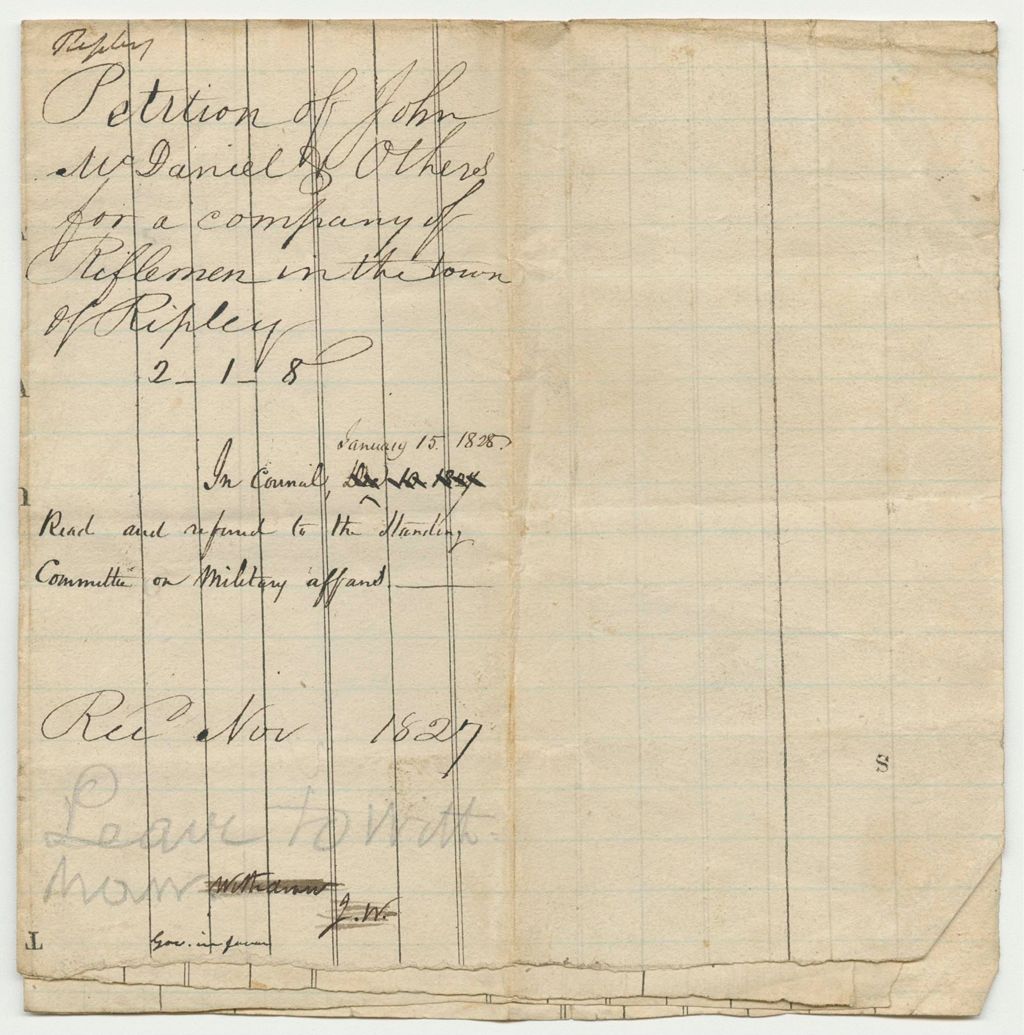 Ripley
Petition of John
McDaniel & Others
for a company of
Riflemen in the town
of Ripley
2-1-8
January 15. 1828.
In Council, Dec 10 1827
Read and referred to the Standing
Committee on Military affairs.
Recd Nov 1827
Leave to With-
draw
Withdraw
J.W.
Gov. in favor
S
T